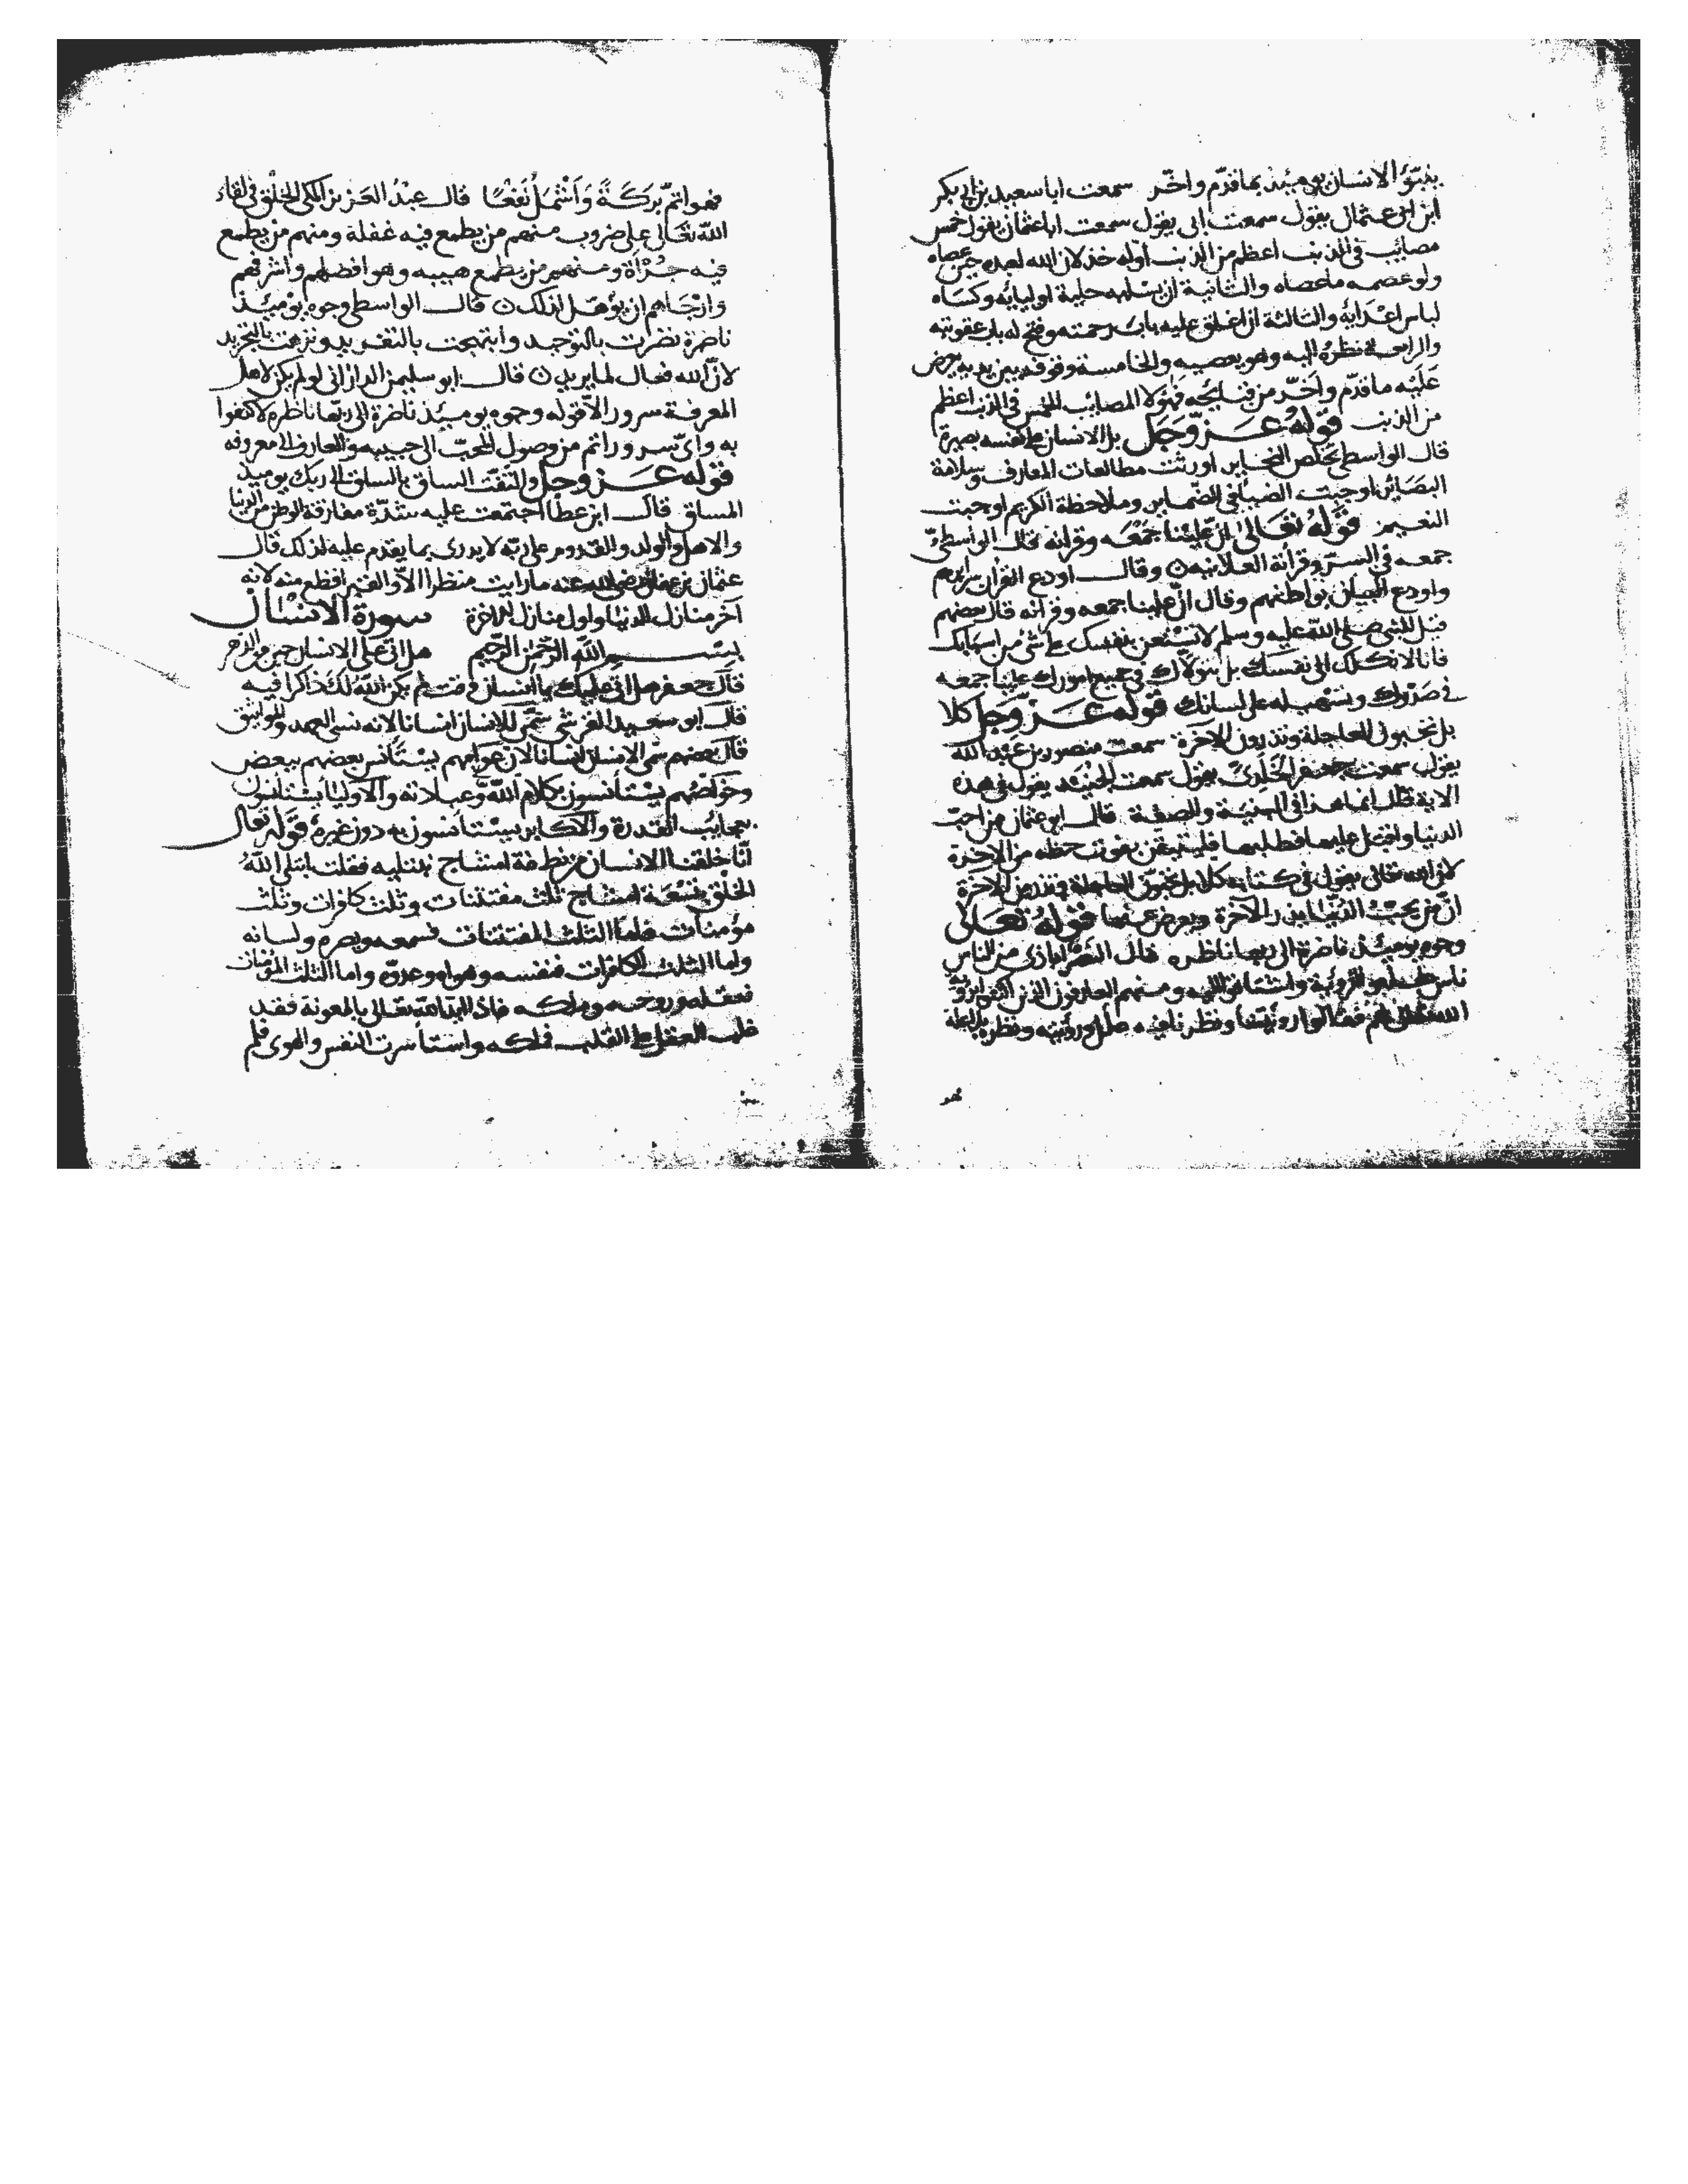 ينبؤ الانسان يومئذ بما قدم واخر سمعت ابا سعيد بن ابى بكر
ابن ابى عثمان يقول سمعت ابى يقول سمعت ابا عثمان يقول خمس
مصائب فى الذنب اعظم من الذنب اوله خذلان الله لعبده حين عصاه
ولو عصمه ما عصاه والثانية ان يسلبه حلية اوليائه وكساه
لباس اعدائه والثالثة ان اغلق عليه باب رحمته وفتح له باب عقوبته
والرابعة نظره اليه وهو يعصيه والخامسة وقوفه بين يديه يعرض
عليه ما قدم واخر من قبائحه فهؤلا المصائب الخمس فى الذنب اعظم
من الذنب قوله عز وجل بل الانسان على نفسه بصيرة
قال الواسطى تخلص اورثت مطالعات المعارف وسلامة
البصائر اوجبت الضيا فى الضماير وملاحظة الكريم اوجبت
النعيم قوله تعالى ان علينا جمعه وقرانه قال الواسطى
جمعه فى السر وقرانه العلانيه وقال اودع القران سرايرهم
واودع البيان بواطنهم وقال ان علينا جمعه وقرانه قال بعضهم
قيل للنبى صلى الله عليه وسلم لا تستعن بنفسك على شئ من اسبابك
فانا لا نكلك الى نفسك بل نتولاك فى جميع امورك علينا جمعه
فى صدرك وتسهيله على لسانك قوله عز وجل كلا
بل تحبون العاجلة وتذرون الاخرة سمعت منصور بن عبد الله
يقول سمعت جعفر الخلدى يقول سمعت الجنيد يقول فى هذه
الاية قال انما هذا فى قال ابو عثمان من احب
الدنيا واقبل عليها فطلبها فليتيقن بفوت حظه من الاخرة
لان الله تعالى يقول فى كتابه كلا بل تحبون العاجلة وتذرون الاخرة
ان من يحب الدنيا يذر الاخرة ويعرض عنها قوله تعالى
وجوه يومئذ ناضرة الى ربها ناظره قال النصراباذى من الناس
ناس طلبوا الرؤية واشتاقوا اليه ومنهم العارفون الذين اكتفوا برؤية
الله لهم فقالوا رؤيتنا ونظرنا فيه علل ورؤيته ونظره بلا علة
فهو
فهو اتم بركة واشمل نفعا قال عبد العزيز المكى الخلق فى لقاء
الله تعالى على ضروب منهم من يطمع فيه غفلة ومنهم من يطمع
فيه جرأة ومنهم من يطمع هيبه وهو افضلهم واشرفهم
وارجاهم ان يؤهل لذلك قال الواسطى وجوه يومئذ
ناضرة نضرت بالتوحيد وابتهجت بالتفريد ونزهت بالتجريد
لان الله فعال لما يريد قال ابو سليمن الدارانى لو لم يكن لاهل
المعرفة سرور الا قوله وجوه يومئذ ناضرة الى ربها ناظره لاكتفوا
به واى سرور اتم من وصول المحب الى حبيبه والعارف الى معروفه
قوله عز وجل والتفت الساق بالساق الى ربك يوميذ
المساق قال ابن عطا اجتمعت عليه شدة مفارقة الوطن من الدنيا
والاهل والولد والقدوم على ربه لا يدرى بما يقدم عليه لذلك قال
عثمان بن عفان رضى الله عنه ما رايت منظرا الا والقبر افظع منه لانه
آخر منازل الدنيا واول منازل الاخرة سورة الانسان
بسم الله الرحمن الرحيم هل اتى على الانسان حين من الدهر
قال جعفر هل اتى عليك يا انسان وقت لم يكن الله لك ذاكرا فيه
قال ابو سعيد القرشى سمى الانسان انسانا لانه نسى العهد والمواثيق
قال بعضهم سمى الانسان انسانا لان عوامهم يستأنس بعضهم ببعض
وخواصهم يستأنسون بكلام الله وعباداته والاوليا يستأنسون
بعجايب القدرة والاكابر يستأنسون به دون غيره قوله تعالى
انا خلقنا الانسان من نطفة امشاج نبتليه فقلت ابتلى الله
الخلق بتسعة امشاج ثلث مفتتنات وثلث كافرات وثلث
مؤمنات فاما الثلث المفتتنات فسمعه وبصره ولسانه
واما الثلث الكافرات فنفسه وهواه وعدوه واما الثلث المؤمنات
فعقله وروحه وملكه فاذا ايد الله تعالى بالمعونة فقد
غلب العقل على القلب فملكه واستأسرت النفس والهوى فلم